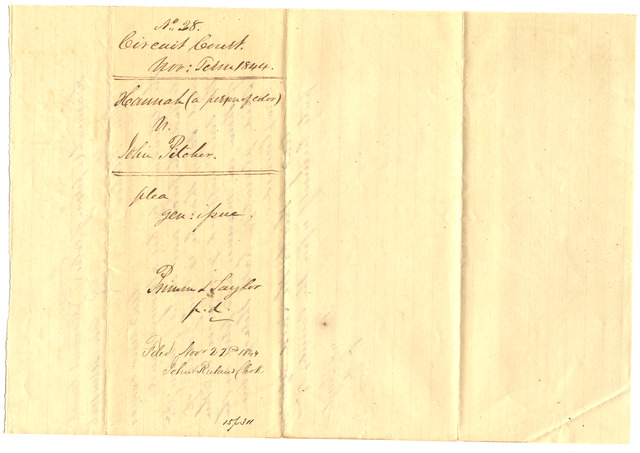 No. 28.
Circuit Court.
Nov: Term 1844.
Hannah (a person of color)
vs.
John Pitcher.
plea
gen: issue.
Primm & Taylor
p. d.
Filed Nov 22nd 1844
John Ruland Clerk